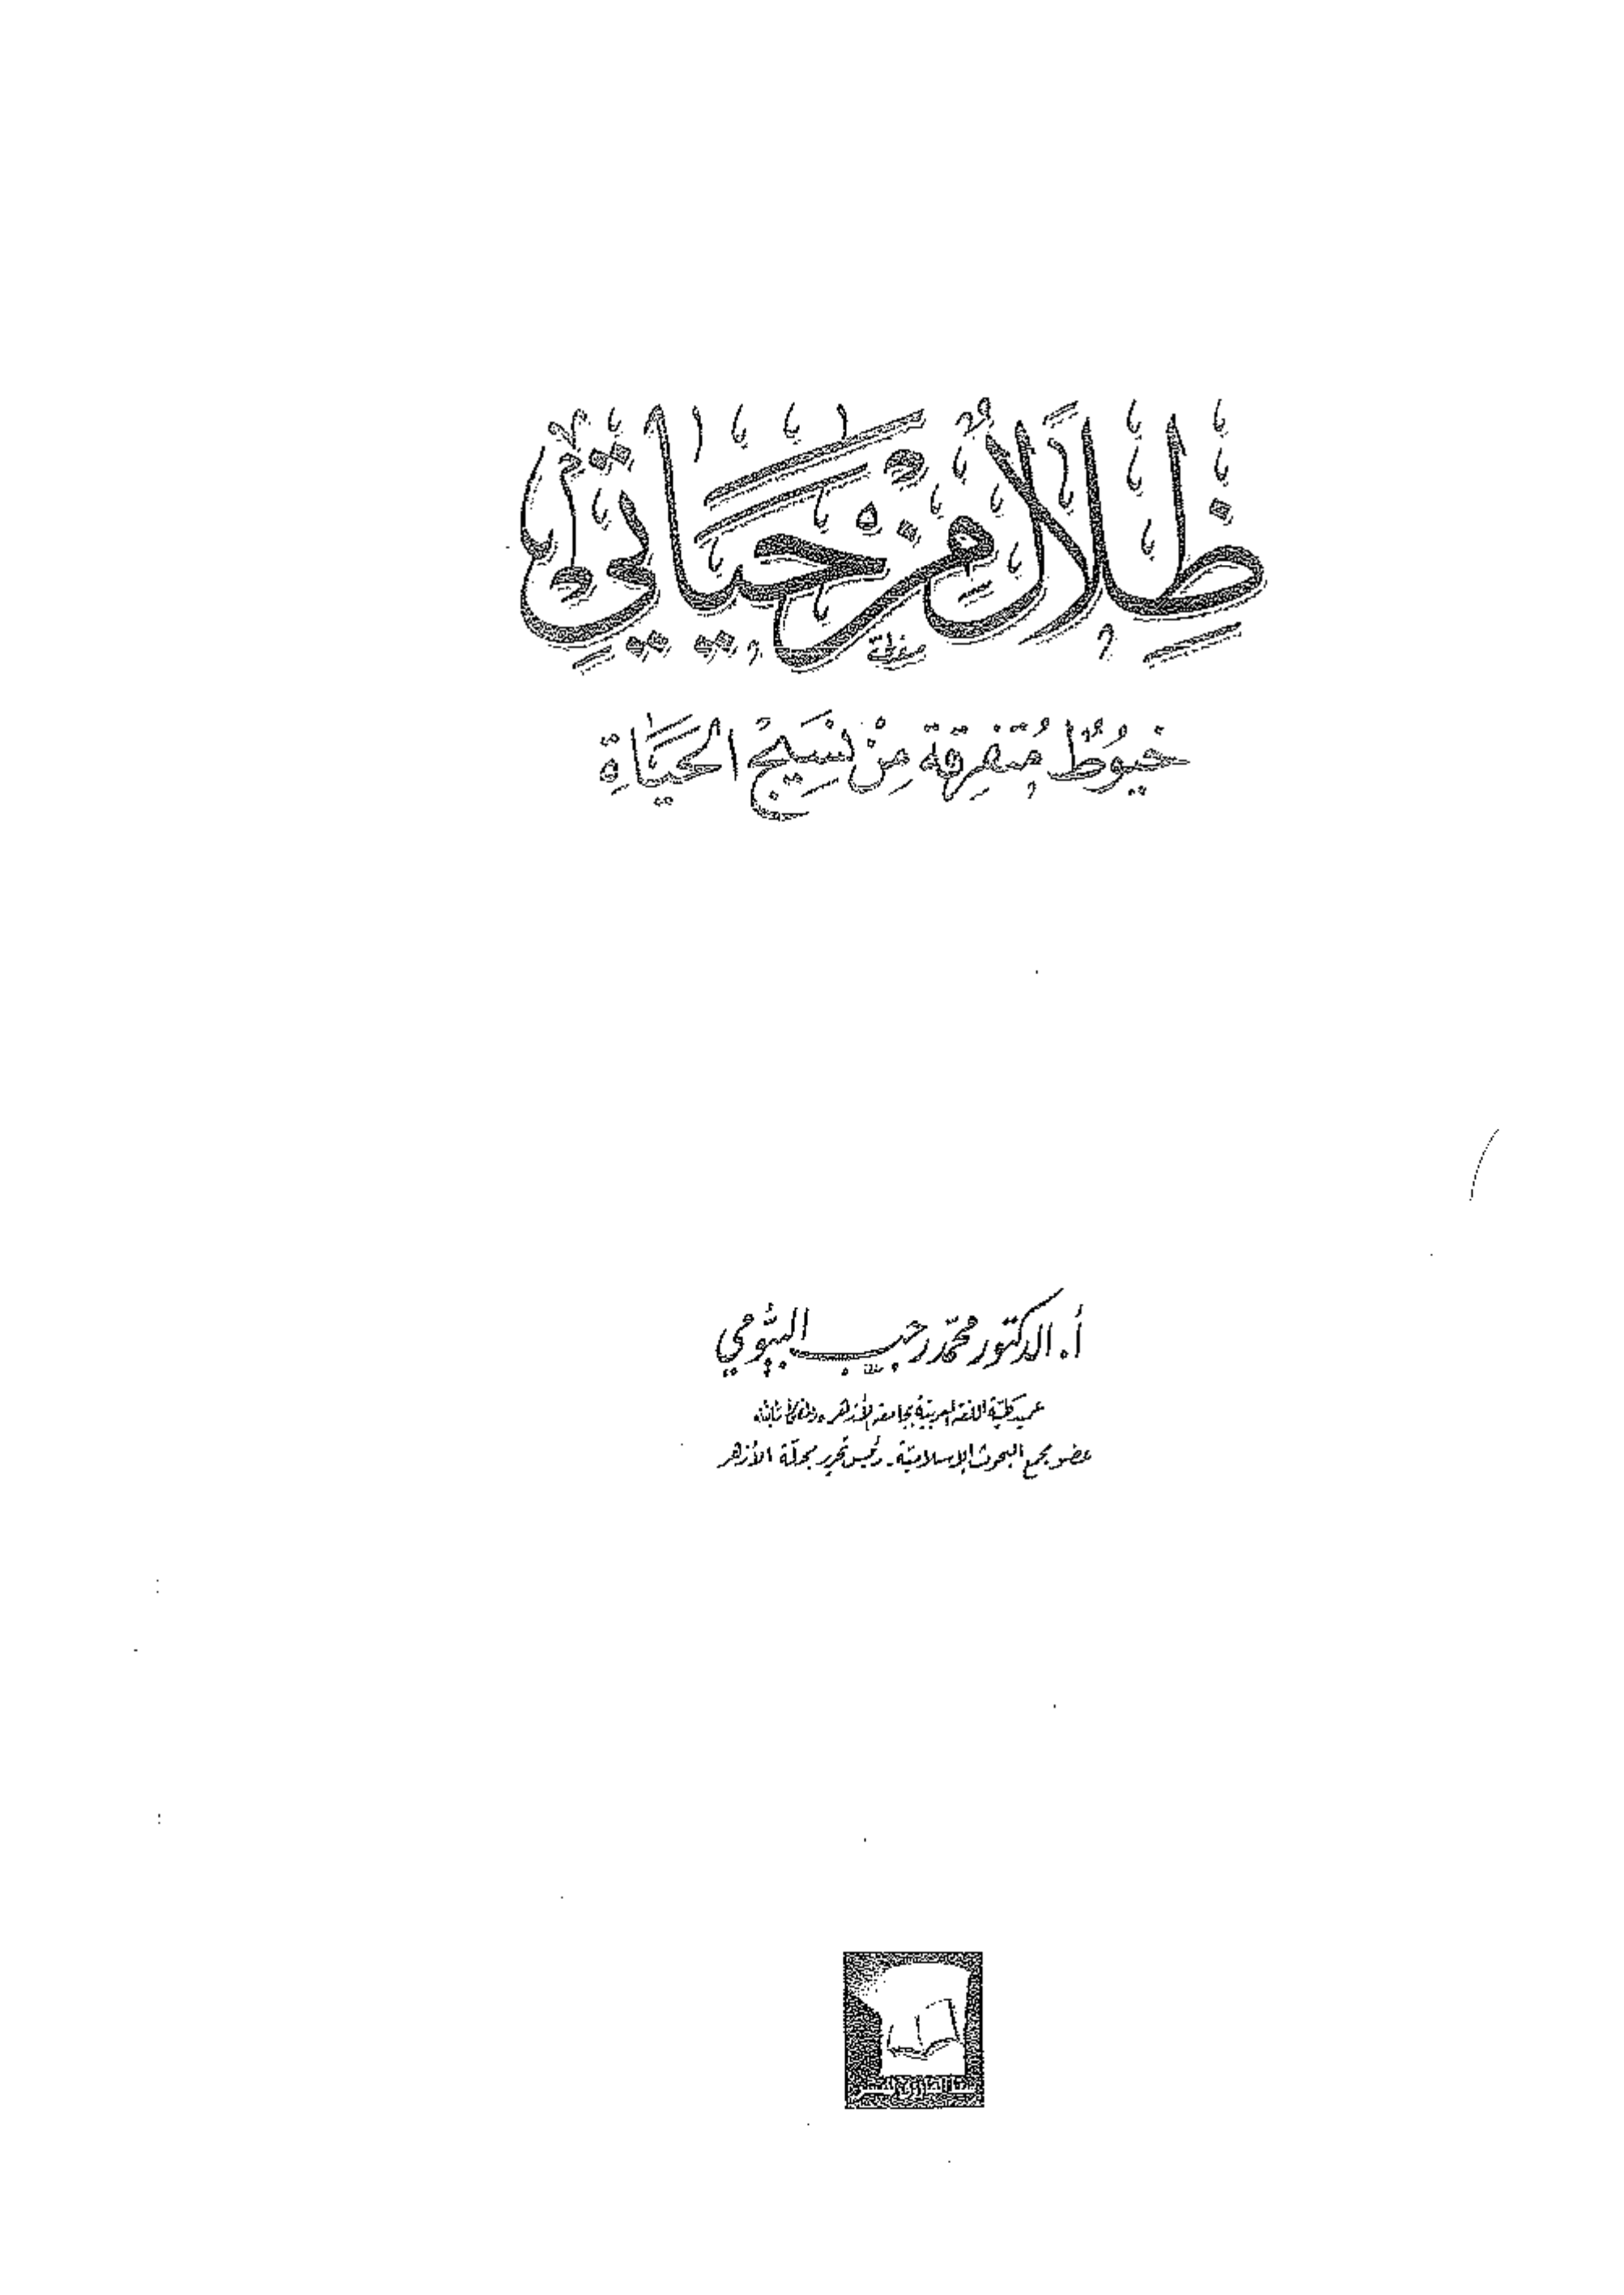 ظِلَالٌ مِنْ حَيَاتِي
خُيُوطٌ مُتَفَرِقَة مِنْ نَسِيجِ الحَيَاةِ
أ. الدكتور محمّد رجب البيّومي
عميد كليّة اللغة العربيّة بجامعة الأزهر
عضو مجمع البحوث الإسلاميّة - رئيس تحرير مجلّة الأزهر